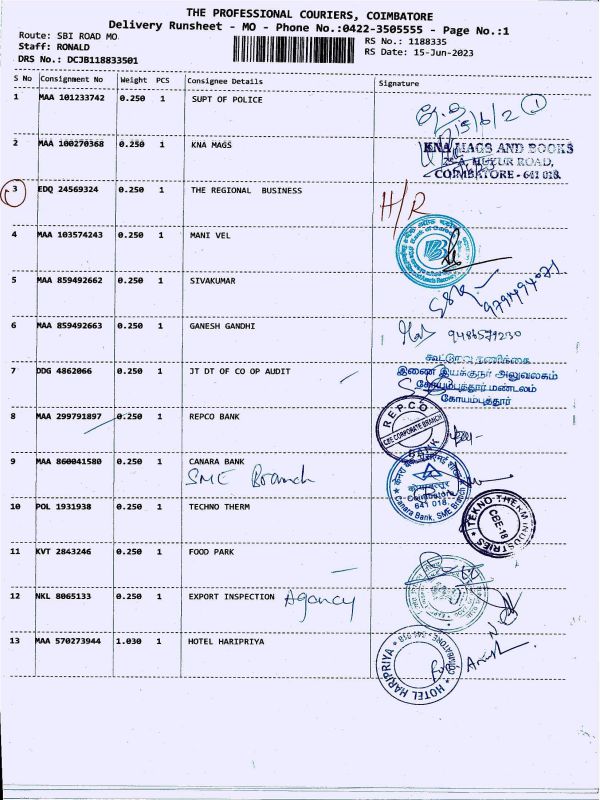 THE PROFESSIONAL COURIERS, COIMBATORE
Delivery Runsheet - MO - Phone No.:0422-3505555 - Page No.:1
Route: SBI ROAD MO
Staff: RONALD
DRS No.: DCJB118833501
RS No.: 1188335
RS Date: 15-Jun-2023
S No Consignment No Weight PCS Consignee Details Signature
1 MAA 101233742 0.250 1 SUPT OF POLICE
15/6/2 1
2 MAA 100270368 0.250 1 KNA MAGS
KNA MAGS AND BOOKS
HUKUR ROAD,
COIMBATORE - 641 018.
3 EDQ 24569324 0.250 1 THE REGIONAL BUSINESS
H/R
4 MAA 103574243 0.250 1 MANI VEL
5 MAA 859492662 0.250 1 SIVAKUMAR
6 MAA 859492663 0.250 1 GANESH GANDHI
9486579230
7 DDG 4862066 0.250 1 JT DT OF CO OP AUDIT
கூட்டுறவு தணிக்கை
இணை இயக்குநர் அலுவலகம்
கோயம்புத்தூர் மண்டலம்
கோயம்புத்தூர்
8 MAA 299791897 0.250 1 REPCO BANK
REPCO BANK
CBE CORPORATE BRANCH
9 MAA 860041580 0.250 1 CANARA BANK
SME Branch
Coimbatore
641 018
Canara Bank, SME Branch
10 POL 1931938 0.250 1 TECHNO THERM
TEKNO THERM INDUSTRIES
CBE-18
11 KVT 2843246 0.250 1 FOOD PARK
12 NKL 8065133 0.250 1 EXPORT INSPECTION Agency
13 MAA 570273944 1.030 1 HOTEL HARIPRIYA
HOTEL HARIPRIYA
COIMBATORE - 641 018